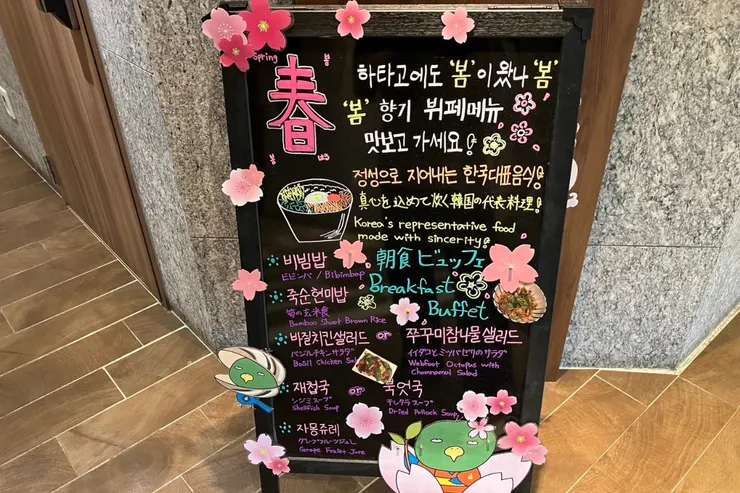 Spring
봄
春
봄
봄
하타고에도 '봄'이 왔나 '봄'
'봄' 향기 뷔페메뉴
맛보고 가세요!
정성으로 지어내는 한국대표음식!
真心を込めて炊く韓国の代表料理!
Korea's representative food
made with sincerity!
朝食 ビュッフェ
Breakfast
Buffet
비빔밥
ビビンバ / Bibimbap
죽순현미밥
筍の玄米食
Bamboo Shoot Brown Rice
바질치킨샐러드 or 쭈꾸미참나물샐러드
バジルチキンサラダ
Basil Chicken Salad
イイダコとミツバゼリのサラダ
Webfoot Octopus with
Chamnamul Salad
재첩국 or 북엇국
シジミスープ
Shellfish Soup
干しタラスープ
Dried Pollack Soup
자몽쥬레
グレープフルーツジュレ
Grape Fruist Jure